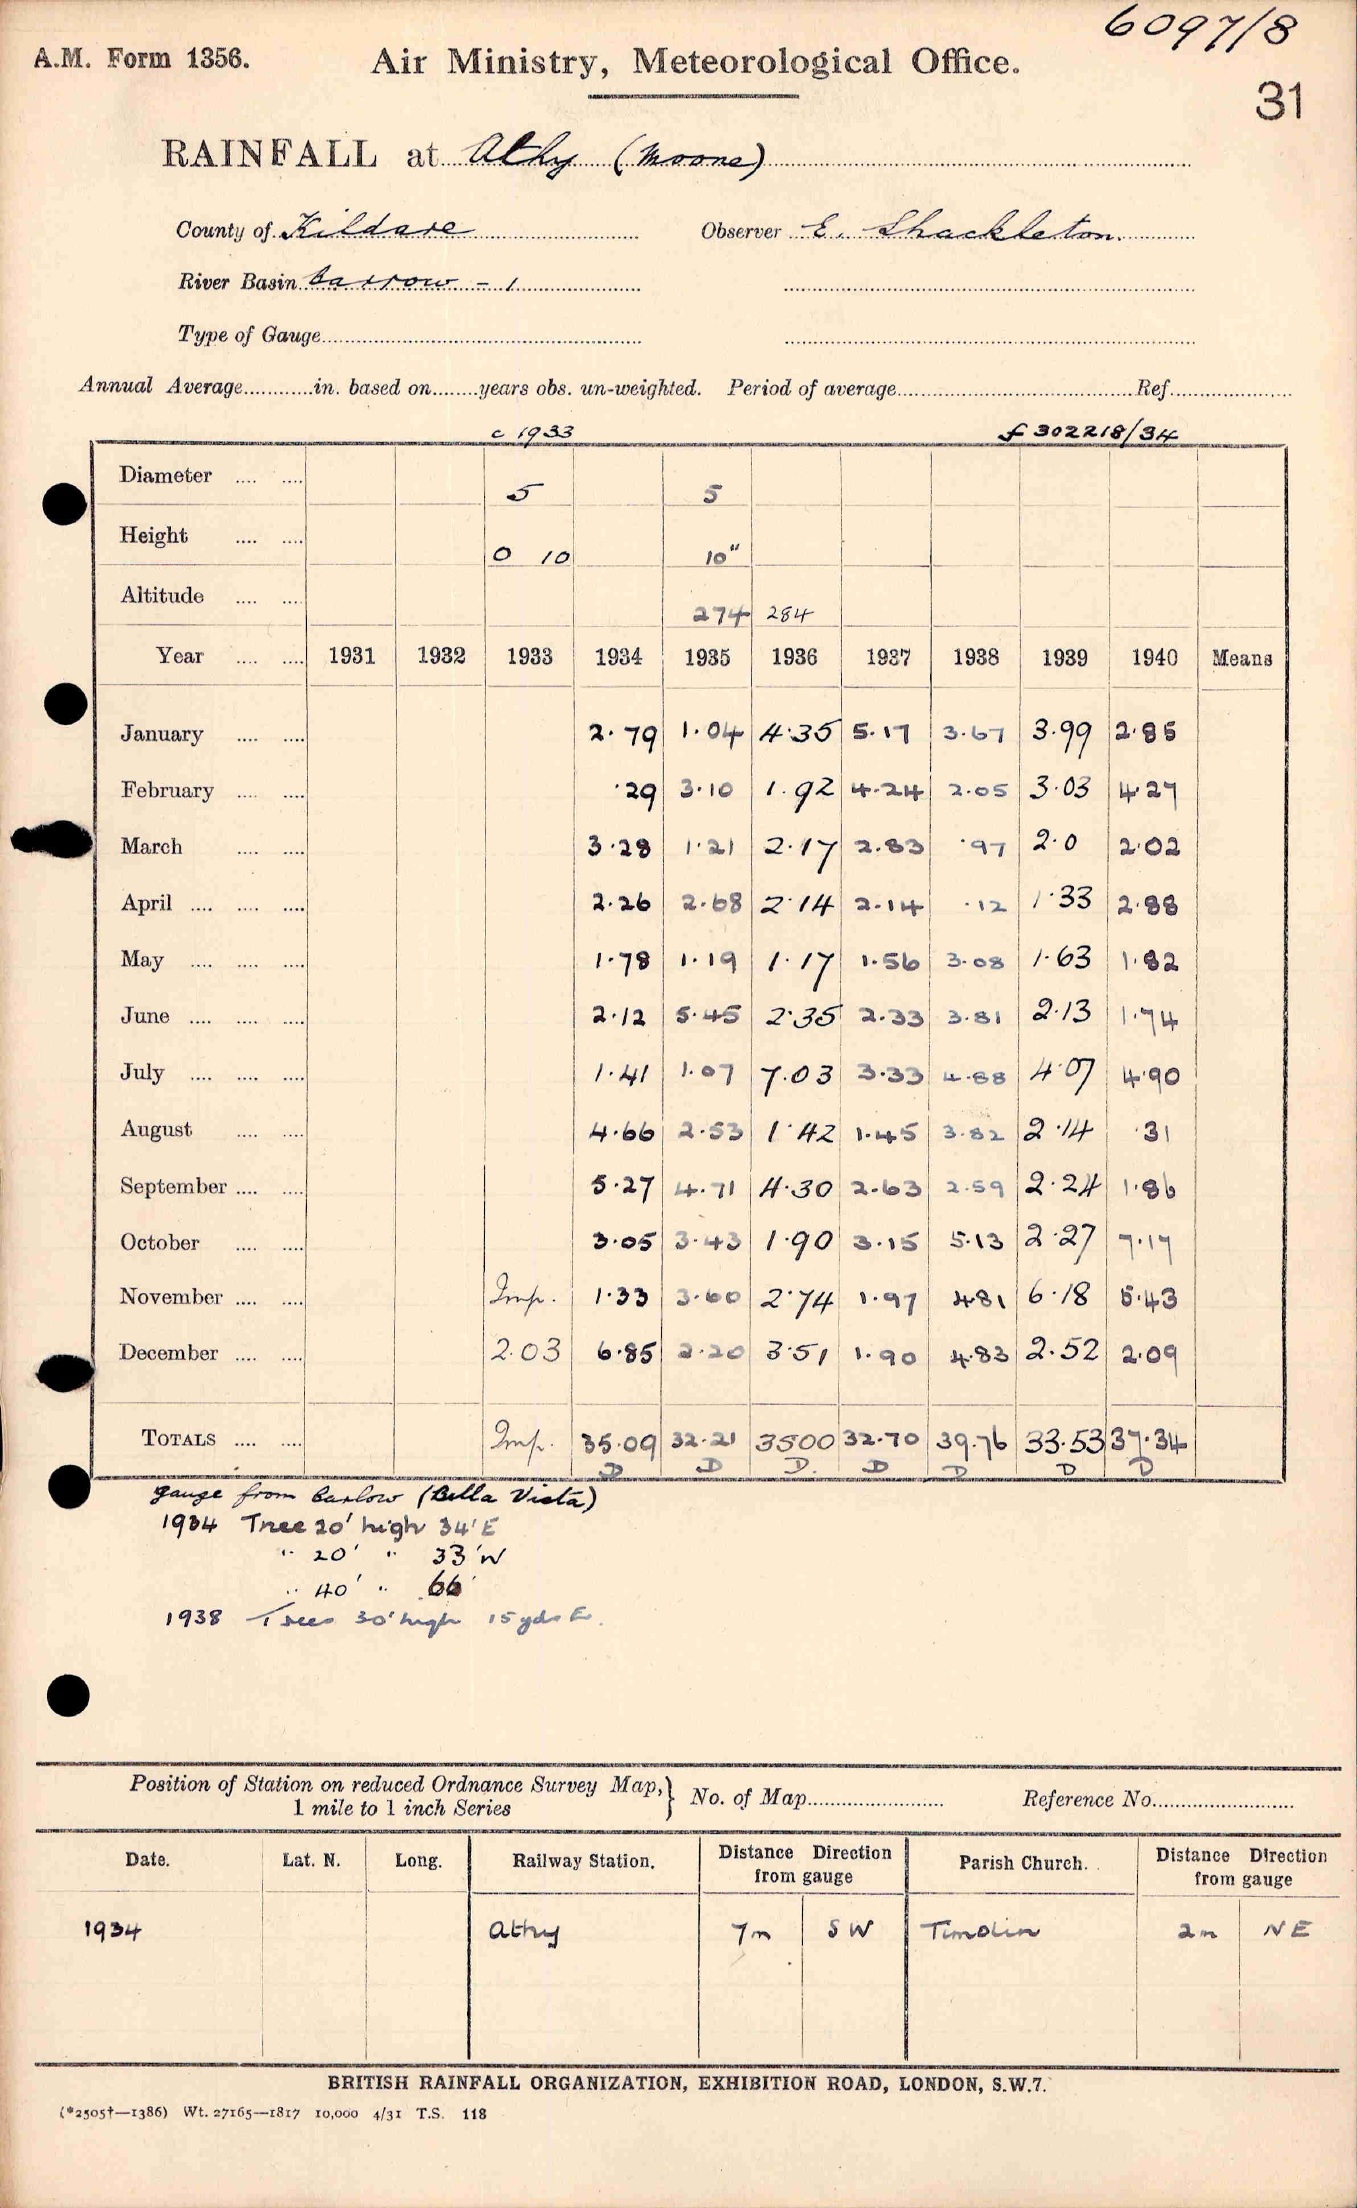 6097/8
A.M. Form 1356. Air Ministry, Meteorological Office.
31
RAINFALL at Athy (Moone)
County of Kildare Observer E. Shackleton.
River Basin Barrow - 1
Type of Gauge
Annual Average in. based on years obs. un-weighted. Period of average Ref.
c 1933 f 302218/34
Diameter 5 5
Height 0 10 10"
Altitude 274 284
Year 1931 1932 1933 1934 1935 1936 1937 1938 1939 1940 Means
January 2.79 1.04 4.35 5.17 3.67 3.99 2.85
February .29 3.10 1.92 4.24 2.05 3.03 4.27
March 3.28 1.21 2.17 2.83 .97 2.0 2.02
April 2.26 2.68 2.14 2.14 .12 1.33 2.88
May 1.78 1.19 1.17 1.56 3.08 1.63 1.82
June 2.12 5.45 2.35 2.33 3.81 2.13 1.74
July 1.41 1.07 7.03 3.33 4.88 4.07 4.90
August 4.66 2.53 1.42 1.45 3.82 2.14 .31
September 5.27 4.71 4.30 2.63 2.59 2.24 1.86
October 3.05 3.43 1.90 3.15 5.13 2.27 7.17
November Imp. 1.33 3.60 2.74 1.97 4.81 6.18 5.43
December 2.03 6.85 2.20 3.51 1.90 4.83 2.52 2.09
TOTALS Imp. 35.09 32.21 3500 32.70 39.76 33.53 37.34
D D D. D D D D
gauge from Carlow (Bella Vista)
1934 Tree 20' high 34' E
" 20' " 33' W
" 40' " 66'
1938 Trees 30' high 15 yds E.
Position of Station on reduced Ordnance Survey Map, } No. of Map Reference No.
1 mile to 1 inch Series
Date. Lat. N. Long. Railway Station. Distance Direction from gauge Parish Church. Distance Direction from gauge
1934 Athy 7m SW Timolin 2m NE
BRITISH RAINFALL ORGANIZATION, EXHIBITION ROAD, LONDON, S.W.7.
(*2505†—1386) Wt. 27165—1817 10,000 4/31 T.S. 118